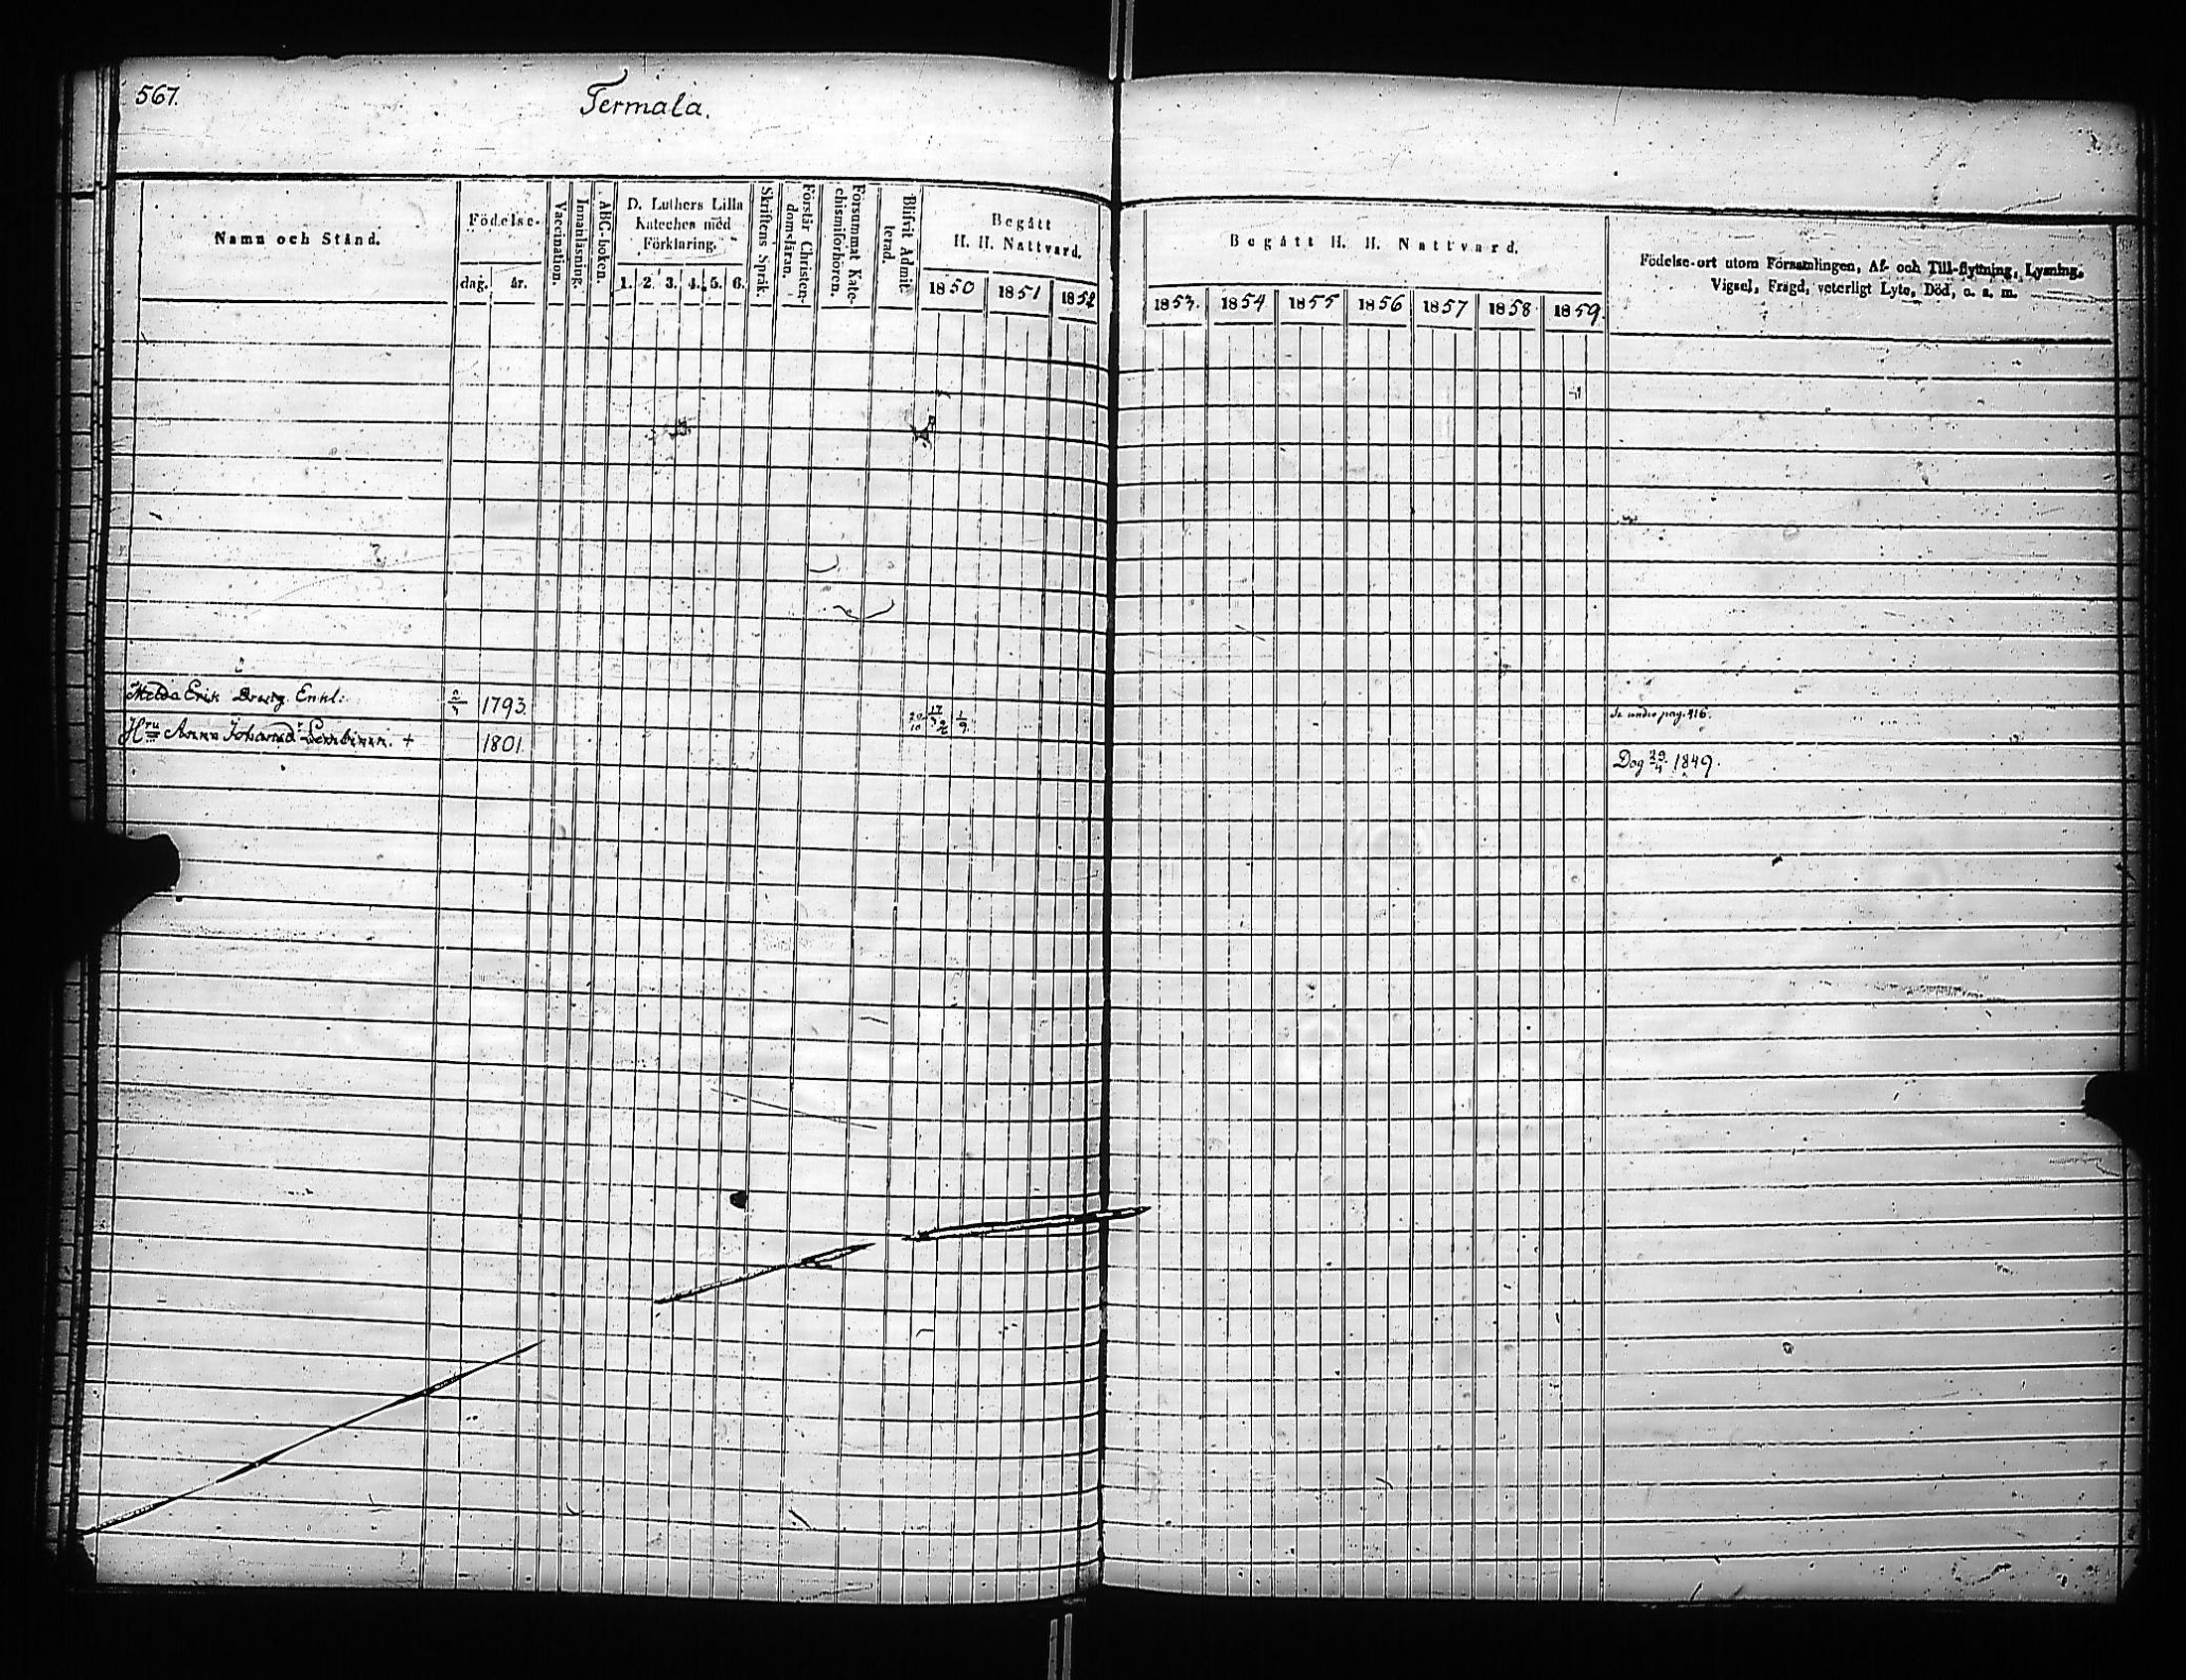 567.
Termala.
Namn och Stånd.
Födelse-
dag. år.
Vaccination.
Innanläsning.
ABC-boken.
D. Luthers Lilla
Kateches med
Förklaring.
1. 2. 3. 4. 5. 6.
Skriftens Språk.
Förstår Christen-
domsläran.
Försummat Kate-
chismiförhören.
Blifvit Admit-
terad.
Begått
H. H. Nattvard.
1850 1851 1852
Begått H. H. Nattvard.
1853. 1854 1855 1856 1857 1858 1859.
Födelse-ort utom Församlingen, Af- och Till-flyttning, Lysning,
Vigsel, Frägd, veterligt Lyte, Död, o. s. m.
Erik Enkl: 1793.
pag. 416.
Hru Anna Johansd:r + 1801
Dog 29/4 1849.